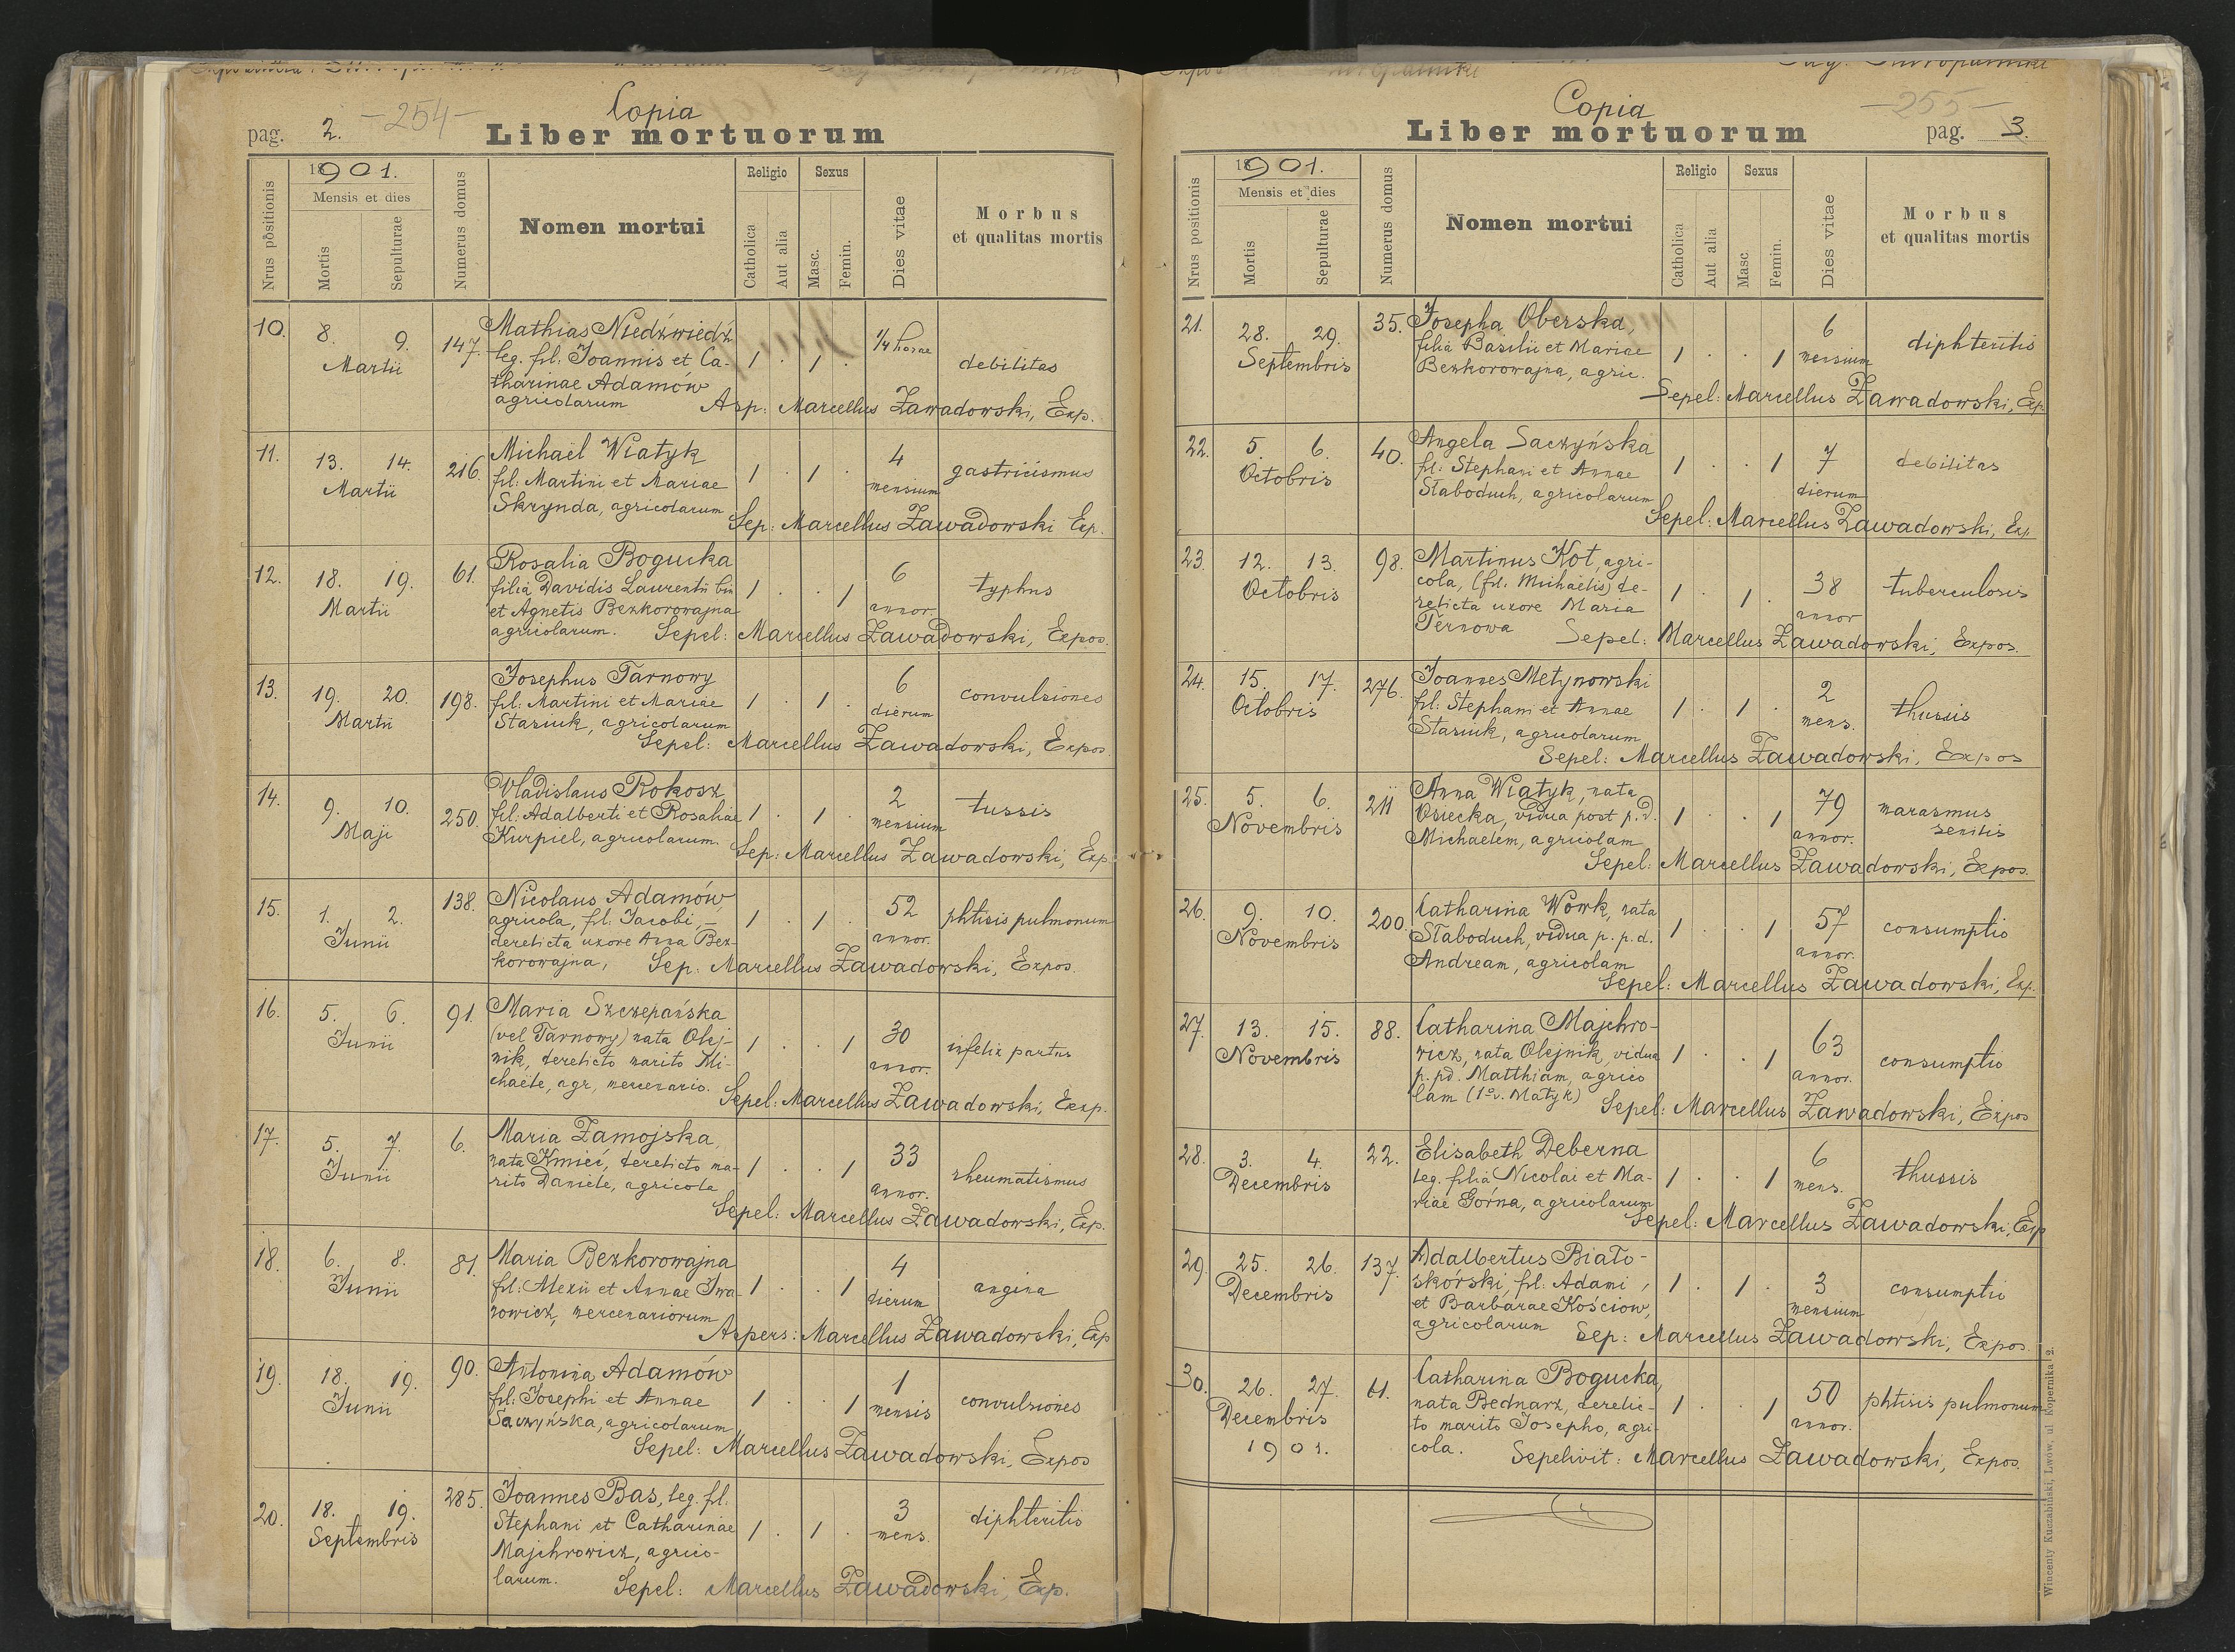 Copia
pag. 2. -254- Liber mortuorum
Nrus positionis
1901.
Mensis et dies
Mortis
Sepulturae
Numerus domus
Nomen mortui
Religio
Catholica
Aut alia
Sexus
Masc.
Femin.
Dies vitae
Morbus
et qualitas mortis
10. 8. 9. Martii 147.
Mathias Niedźwiedź
leg. fil. Joannis et Ca-
tharinae Adamów
agricolarum
1 . 1 . 1/4 horae debilitas
Asp: Marcellus Zawadowski, Exp.
11. 13. 14. Martii 216.
Michaël Wiatyk
fil: Martini et Mariae
Skrynda, agricolarum
1 . 1 . 4 mensium gastricismus
Sep: Marcellus Zawadowski Exp.
12. 18. 19. Martii 61.
Rosalia Bogucka
filia Davidis Laurentii bin
et Agnetis Bezkorowajna
agricolarum.
1 . . 1 6 annor. typhus
Sepel: Marcellus Zawadowski, Expos.
13. 19. 20. Martii 198.
Josephus Tarnowy
fil: Martini et Mariae
Stasiuk, agricolarum
1 . 1 . 6 dierum convulsiones
Sepel: Marcellus Zawadowski, Expos.
14. 9. 10. Maji 250.
Vladislaus Rokosz
fil: Adalberti et Rosaliae
Kurpiel, agricolarum.
1 . 1 . 2 mensium tussis
Sep: Marcellus Zawadowski, Exp
15. 1. 2. Junii 138.
Nicolaus Adamów
agricola, fil: Jacobi, -
derelicta uxore Anna Bez-
korowajna,
1 . 1 52 annor. phtisis pulmonum
Sep: Marcellus Zawadowski, Expos.
16. 5. 6. Junii 91.
Maria Szczepańska
(vel Tarnowy) nata Olej-
nik, derelicto marito Mi-
chaële, agr, mercenario.
1 . . 1 30 annor. infelix partus
Sepel: Marcellus Zawadowski, Exp.
17. 5. 7. Junii 6.
Maria Zamojska,
nata Kmieć, derelicto ma-
rito Daniele, agricola
1 . . 1 33 annor. rheumatismus
Sepel: Marcellus Zawadowski, Exp.
18. 6. 8. Junii 81.
Maria Bezkorowajna
fil: Alexii et Annae Iwa-
nowicz, mercenariorum
1 . . 1 4 dierum angina
Aspers: Marcellus Zawadowski, Exp
19. 18. 19. Junii 90.
Antonina Adamów
fil: Josephi et Annae
Saczyńska, agricolarum
1 . . 1 1 mensis convulsiones
Sepel: Marcellus Zawadowski, Expos
20. 18. 19. Septembris 285.
Joannes Bas, leg. fil.
Stephani et Catharinae
Majchrowicz, agrico-
larum.
1 . 1 . 3 mens. diphteritis
Sepel: Marcellus Zawadowski, Exp.
Copia
Liber mortuorum -255- pag. 3.
Nrus positionis
1901.
Mensis et dies
Mortis
Sepulturae
Numerus domus
Nomen mortui
Religio
Catholica
Aut alia
Sexus
Masc
Femin.
Dies vitae
Morbus
et qualitas mortis
21. 28. 29. Septembris 35.
Josepha Oberska,
filia Basilii et Mariae
Bezkorowajna, agric.
1 . . 1 6 mensium diphteritis
Sepel: Marcellus Zawadowski, Exp
22. 5. 6. Octobris 40.
Angela Saczyńska
fil: Stephani et Annae
Słaboduch, agricolarum
1 . . 1 7 dierum debilitas
Sepel: Marcellus Zawadowski, Exp
23. 12. 13. Octobris 98.
Martinus Kot, agri-
cola, (fil. Michaëlis) de-
relicta uxore Maria
Ternowa
1 . 1 . 38 annor tuberculosis
Sepel: Marcellus Zawadowski, Expos.
24. 15. 17. Octobris 276.
Joannes Metynowski
fil: Stephani et Annae
Stasiuk, agricolarum
1 . 1 . 2 mens. thussis
Sepel: Marcellus Zawadowski, Expos
25. 5. 6. Novembris 211
Anna Wiatyk, nata
Osiecka, vidua post p. d.
Michaelem, agricolam
1 . . 1 79 annor. marasmus senilis
Sepel: Marcellus Zawadowski, Expos.
26. 9. 10. Novembris 200.
Catharina Wowk, nata
Słaboduch, vidua p. p. d.
Andream, agricolam
1 . . 1 57 annor. consumptio
Sepel: Marcellus Zawadowski, Exp.
27. 13. 15. Novembris 88.
Catharina Majchro-
wicz, nata Olejnik, vidua
p. pd. Matthiam, agrico
lam (1o v. Matyk)
1 . . 1 63 annor. consumptio
Sepel: Marcellus Zawadowski, Expos
28. 3. 4. Decembris 22.
Elisabeth Deberna
leg. filia Nicolai et Ma-
riae Górna, agricolarum
1 . . 1 6 mens. thussis
Sepel: Marcellus Zawadowski, Exp
29. 25. 26. Decembris 137.
Adalbertus Biało-
skórski, fil: Adami,
et Barbarae Kościow,
agricolarum
1 . 1 . 3 mensium consumptio
Sep: Marcellus Zawadowski, Expos.
30. 26. 27. Decembris 1901. 61.
Catharina Bogucka,
nata Bednarz, derelic-
to marito Josepho, agri-
cola.
1 . . 1 50 annor. phtisis pulmonum
Sepelivit: Marcellus Zawadowski, Expos.
Wincenty Kuczabiński, Lwów, ul Kopernika 2.